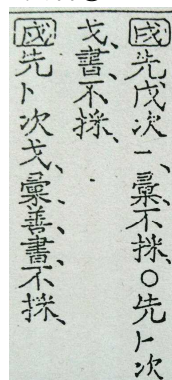 國先戊次一、彙不採、○先卜次
戈、書不採、
戌先卜次戈、彙善書不採、